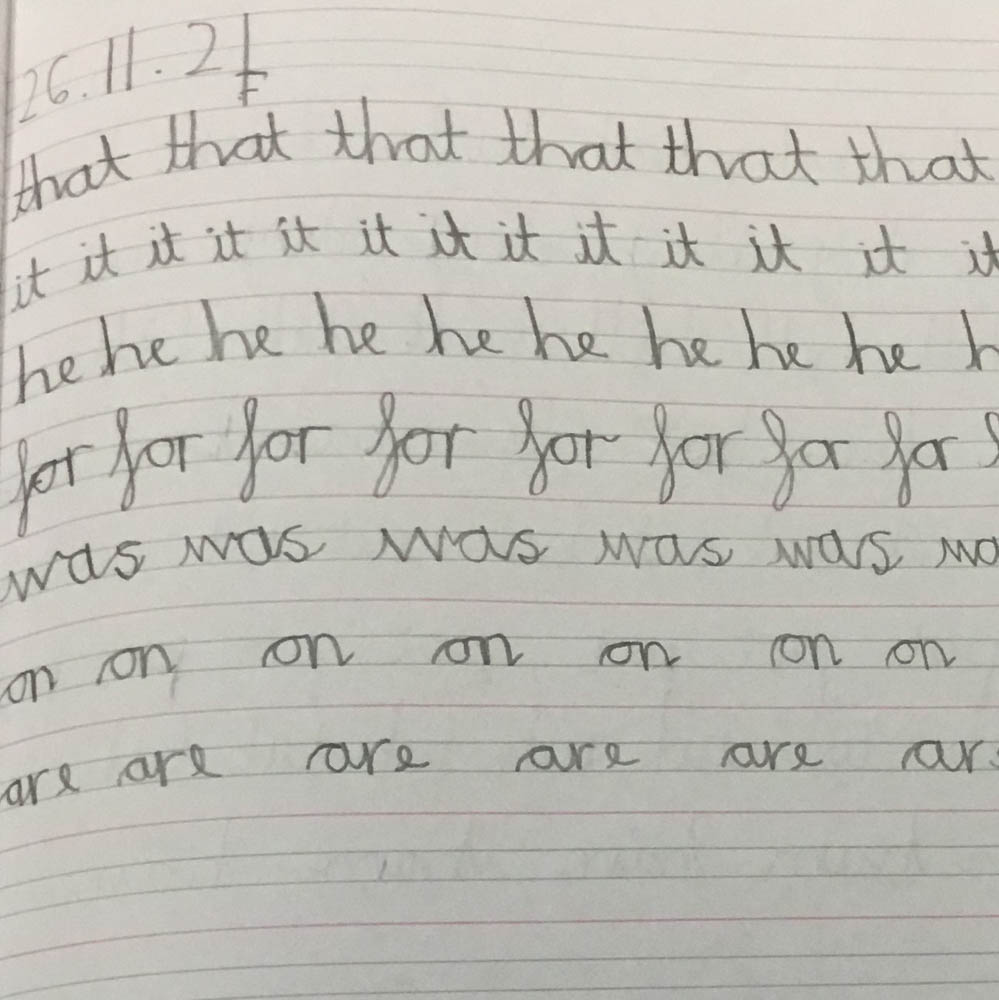 26.11.21
that that that that that that
it it it it it it it it it it it it it
he he he he he he he he he h
for for for for for for for for f
was was was was was wa
on on on on on on on
are are are are are are